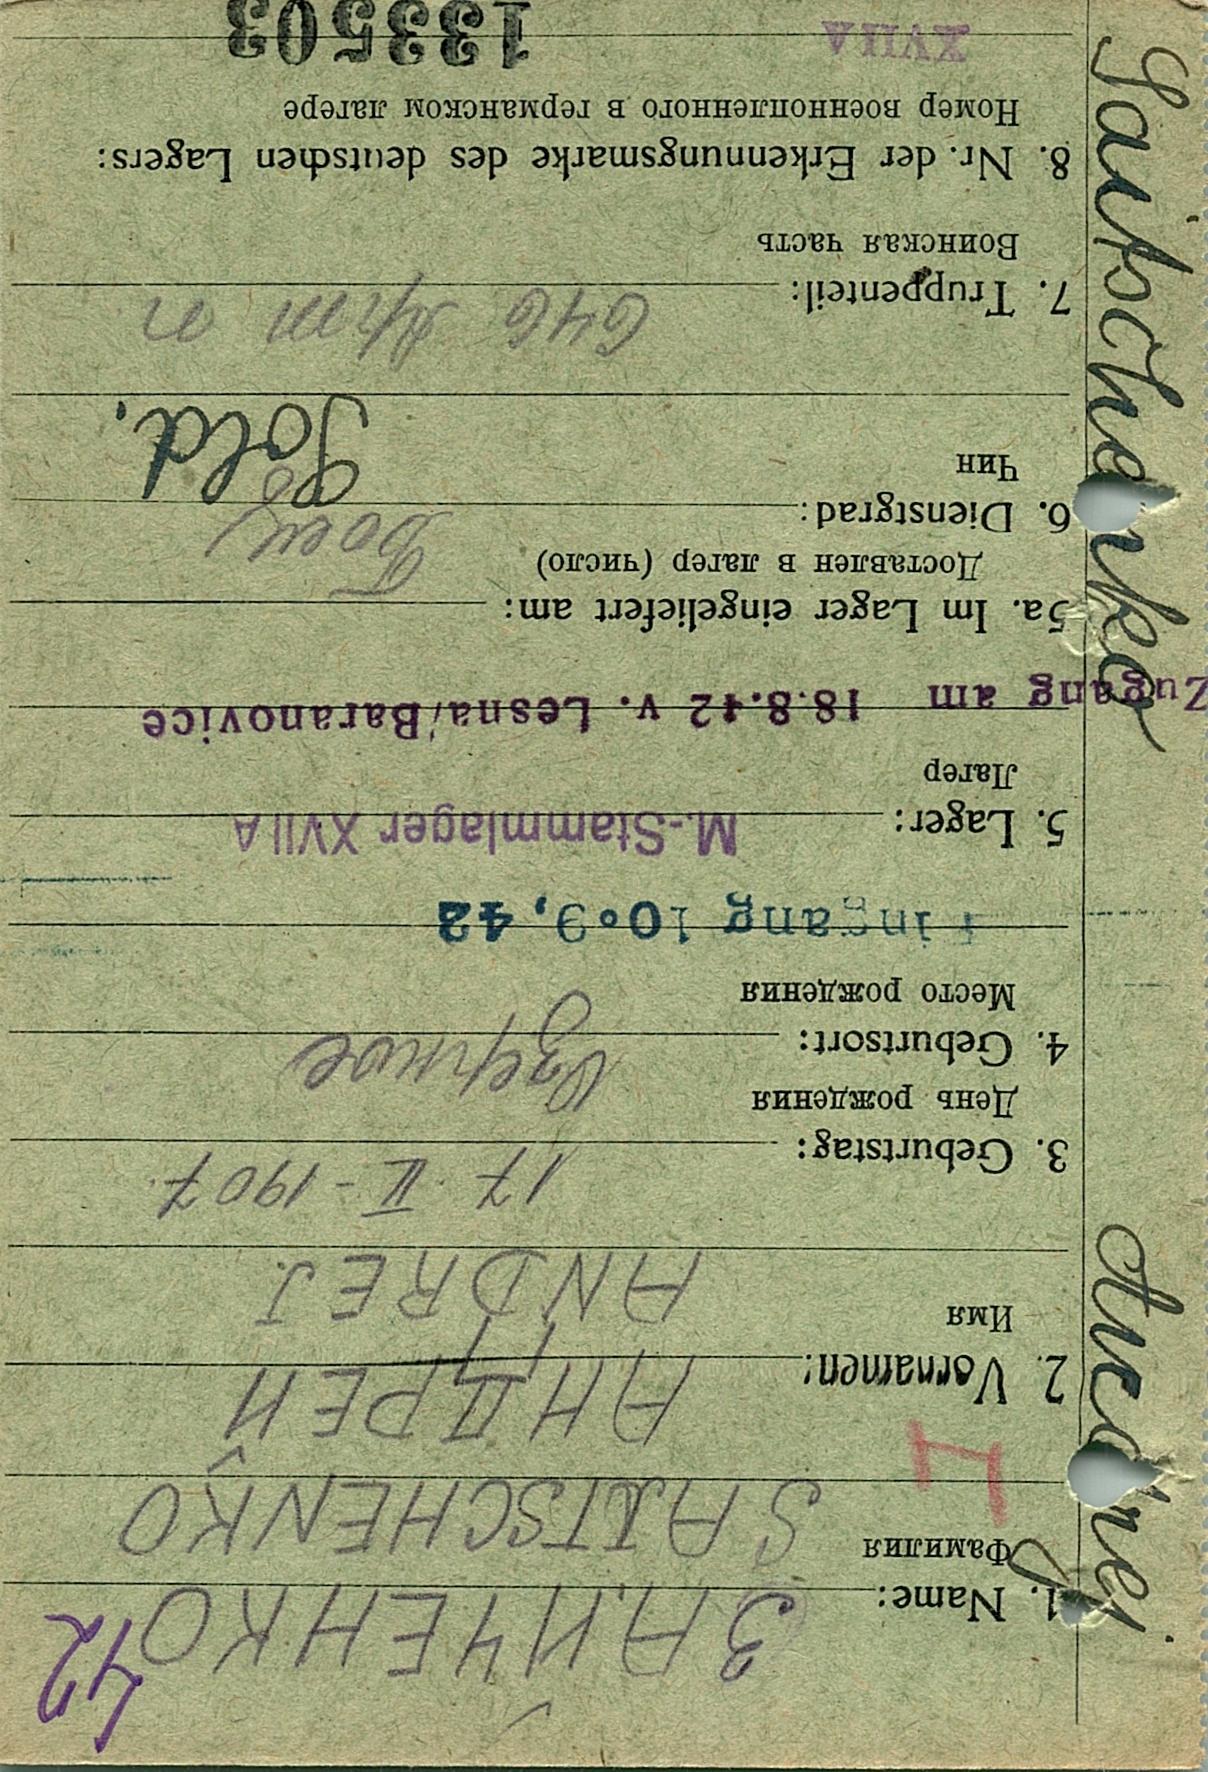 42
ЗАЙЧЕНКО
1. Name:
Фамилия
SAITSCHENKO
АНДРЕЙ
2. Vornamen:
Имя
ANDREJ
17. II - 1907.
3. Geburtstag:
День рождения
4. Geburtsort:
Место рождения
Eingang 10.9.42
M.-Stammlager XVII A
5. Lager:
Лагерь
Zugang am 18.8.42 v. Lesna/Baranovice
5a. Im Lager eingeliefert am:
Доставлен в лагерь (число)
Боец
6. Dienstgrad:
Чин
Sold.
646 Арт п
7. Truppenteil:
Воинская часть
8. Nr. der Erkennungsmarke des deutschen Lagers:
Номер военнопленного в германском лагере
XVII A 133503
Saitschenko Andrej